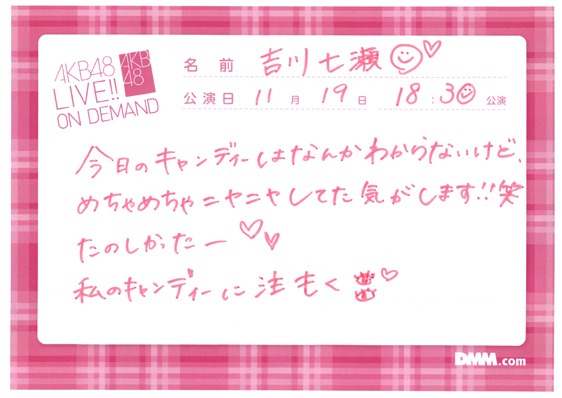 AKB48
LIVE!!
ON DEMAND
AKB
48
名前 吉川七瀬
公演日 11月19日 18:30公演
今日のキャンディーはなんかわからないけど、
めちゃめちゃニヤニヤしてた気がします!!笑
たのしかったー
私のキャンディーに注もく
DMM.com